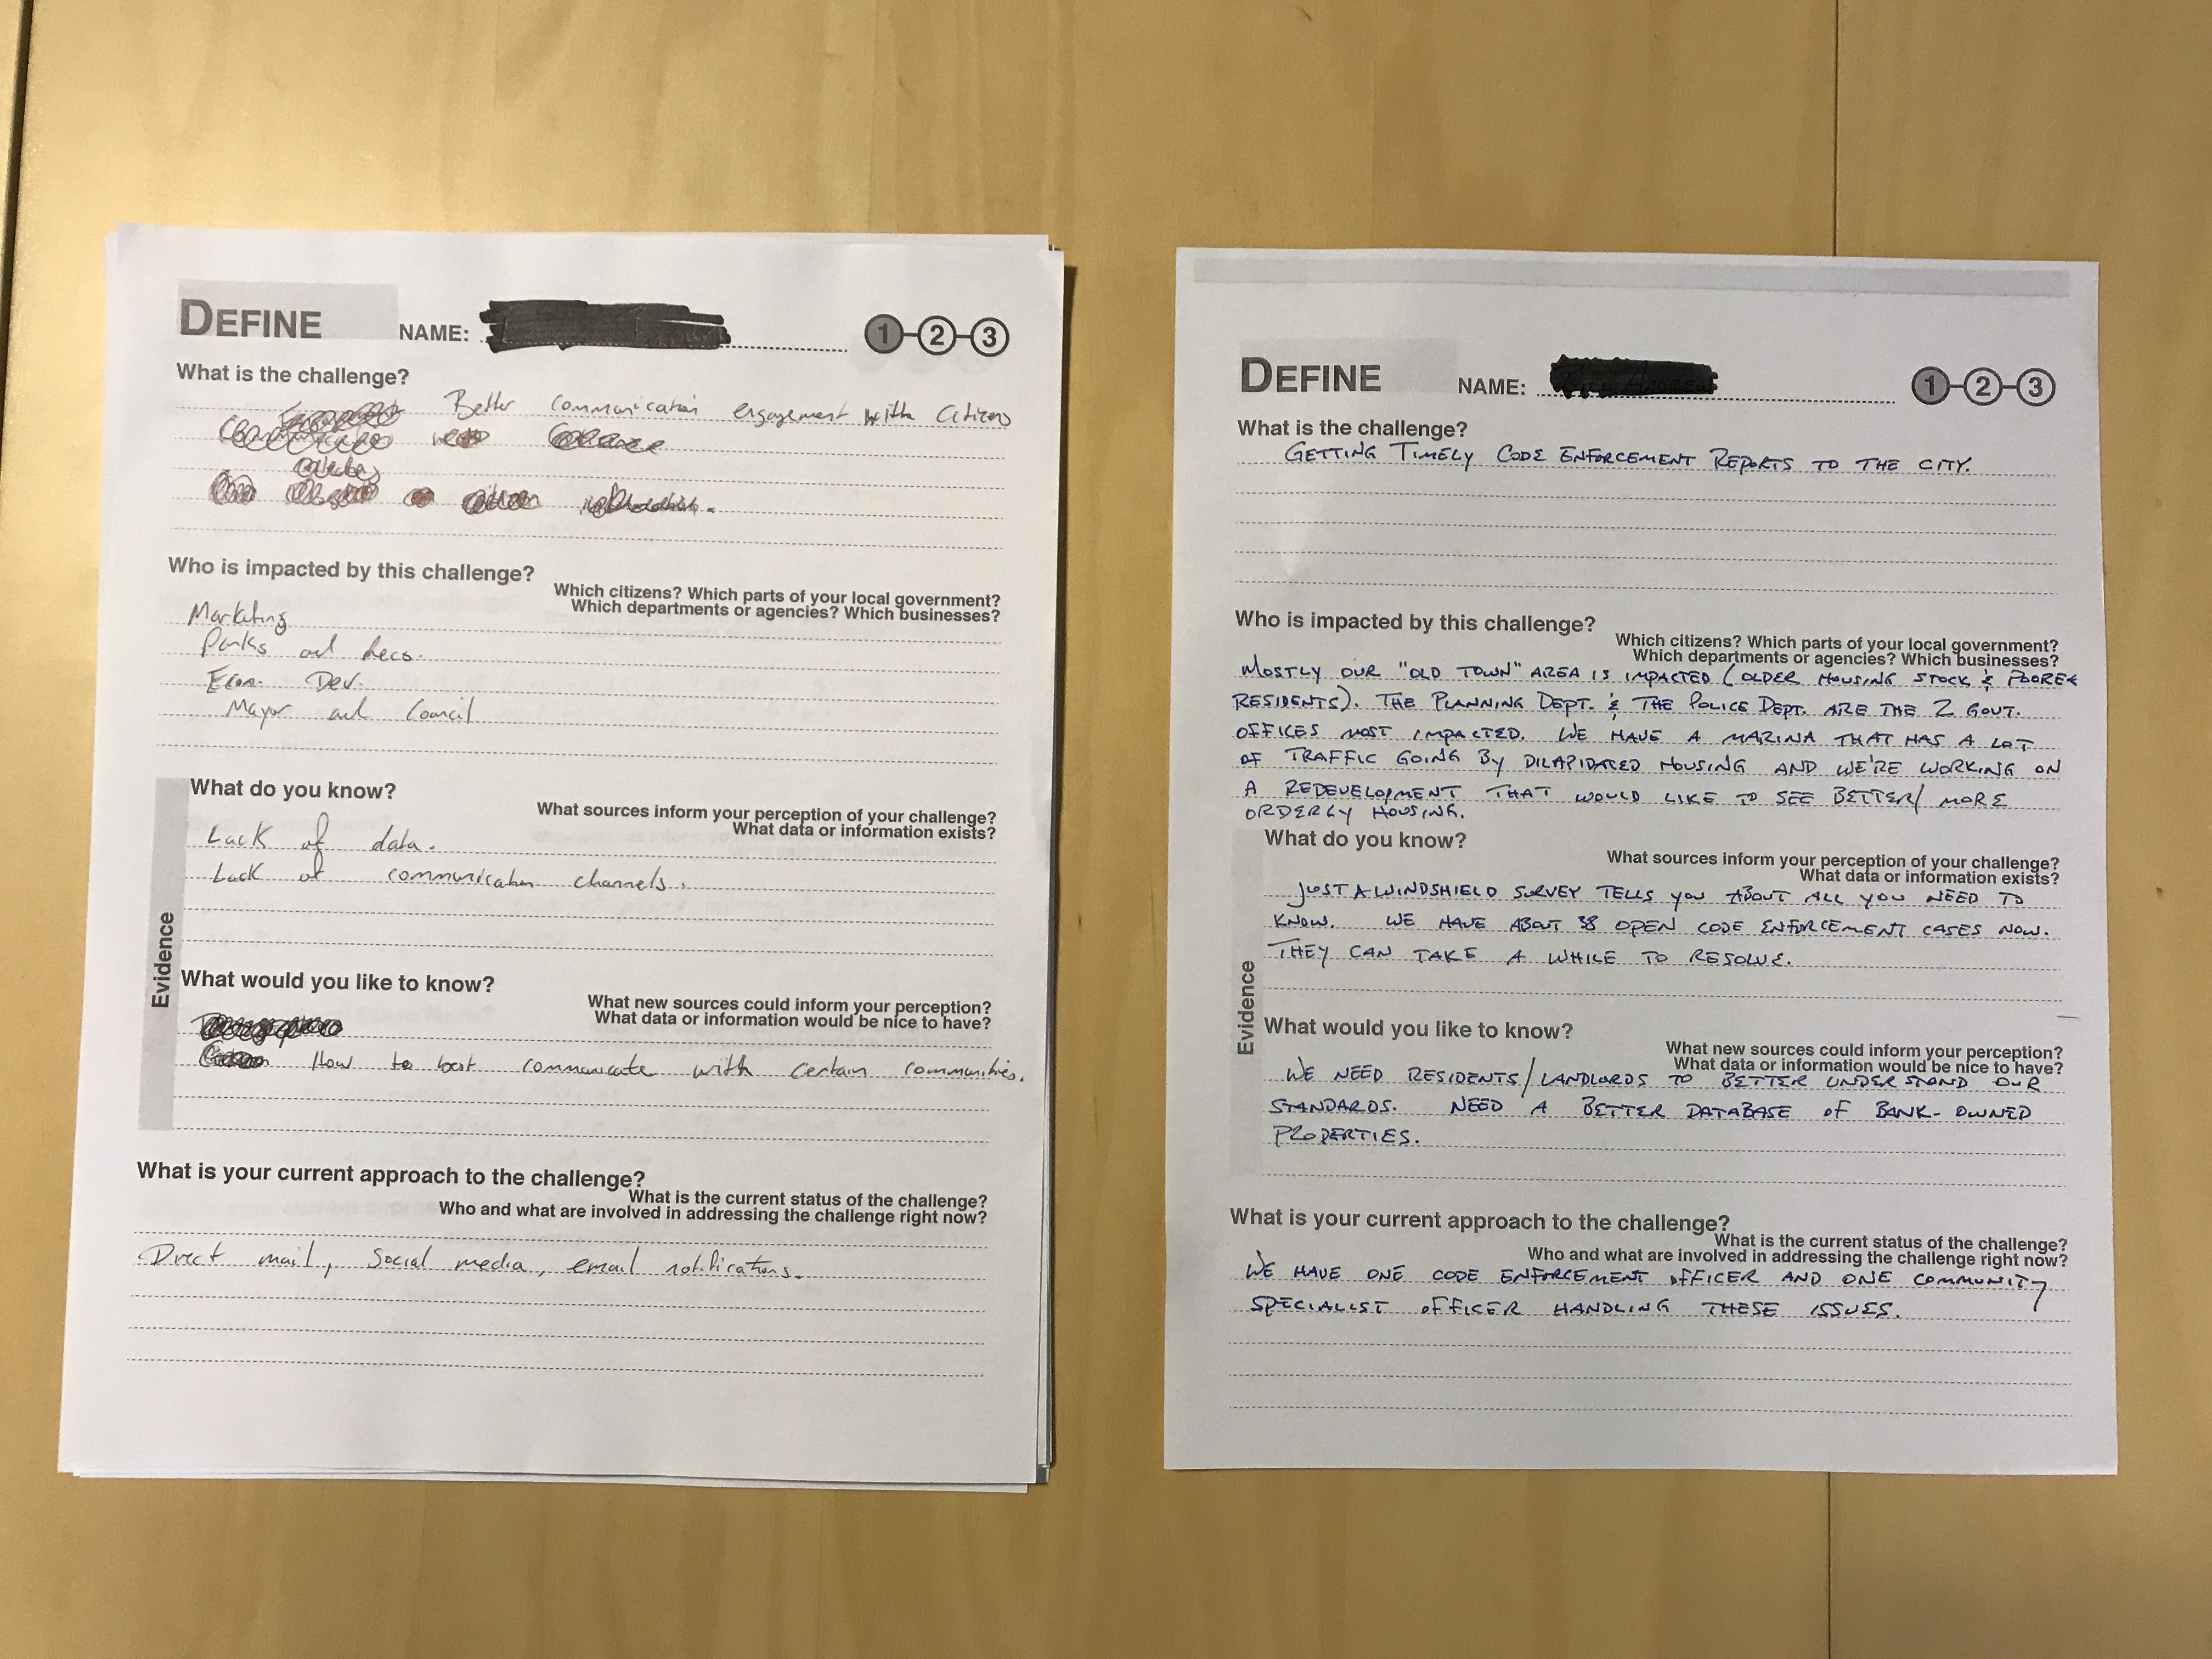 DEFINE NAME: 1 2 3
What is the challenge?
Better communication engagement with Citizens
Who is impacted by this challenge?
Which citizens? Which parts of your local government?
Which departments or agencies? Which businesses?
Marketing
Parks and Recs.
Econ. Dev.
Mayor and Council
Evidence
What do you know?
What sources inform your perception of your challenge?
What data or information exists?
Lack of data.
Lack of communication channels.
What would you like to know?
What new sources could inform your perception?
What data or information would be nice to have?
How to best communicate with certain communities.
What is your current approach to the challenge?
What is the current status of the challenge?
Who and what are involved in addressing the challenge right now?
Direct mail, Social media, email notifications.
DEFINE NAME: 1 2 3
What is the challenge?
GETTING TIMELY CODE ENFORCEMENT REPORTS TO THE CITY.
Who is impacted by this challenge?
Which citizens? Which parts of your local government?
Which departments or agencies? Which businesses?
MOSTLY OUR "OLD TOWN" AREA IS IMPACTED (OLDER HOUSING STOCK & POORER
RESIDENTS). THE PLANNING DEPT. & THE POLICE DEPT. ARE THE 2 GOVT.
OFFICES MOST IMPACTED. WE HAVE A MARINA THAT HAS A LOT
OF TRAFFIC GOING BY DILAPIDATED HOUSING AND WE'RE WORKING ON
A REDEVELOPMENT THAT WOULD LIKE TO SEE BETTER/MORE
ORDERLY HOUSING.
Evidence
What do you know?
What sources inform your perception of your challenge?
What data or information exists?
JUST A WINDSHIELD SURVEY TELLS YOU ABOUT ALL YOU NEED TO
KNOW. WE HAVE ABOUT 38 OPEN CODE ENFORCEMENT CASES NOW.
THEY CAN TAKE A WHILE TO RESOLVE.
What would you like to know?
What new sources could inform your perception?
What data or information would be nice to have?
WE NEED RESIDENTS/LANDLORDS TO BETTER UNDERSTAND OUR
STANDARDS. NEED A BETTER DATABASE OF BANK-OWNED
PROPERTIES.
What is your current approach to the challenge?
What is the current status of the challenge?
Who and what are involved in addressing the challenge right now?
WE HAVE ONE CODE ENFORCEMENT OFFICER AND ONE COMMUNITY
SPECIALIST OFFICER HANDLING THESE ISSUES.